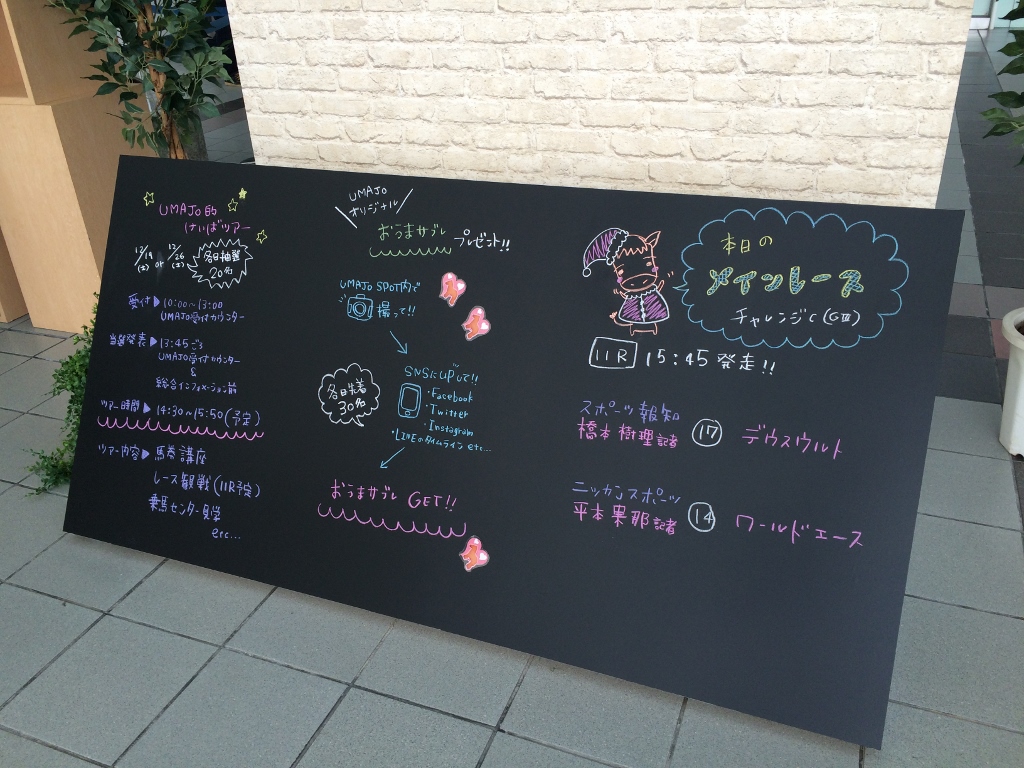 UMAJO的
けいばツアー
12/19
(土) or 12/26
(土)
各日抽選
20名
受付▶10:00〜13:00
UMAJO受付カウンター
当選発表▶13:45ごろ
UMAJO受付カウンター
&
総合インフォメーション前
ツアー時間▶14:30〜15:50(予定)
ツアー内容▶馬券講座
レース観戦(11R予定)
乗馬センター見学
etc...
UMAJO
オリジナル
おうまサブレ プレゼント!!
UMAJO SPOT内で
撮って!!
SNSにUPして!!
・Facebook
・Twitter
・Instagram
・LINEのタイムライン etc...
各日先着
30名
おうまサブレ GET!!
本日の
メインレース
チャレンジC(GⅢ)
11R 15:45発走!!
スポーツ報知
橋本樹理記者 ⑰ デウスウルト
ニッカンスポーツ
平本果那記者 ⑭ ワールドエース